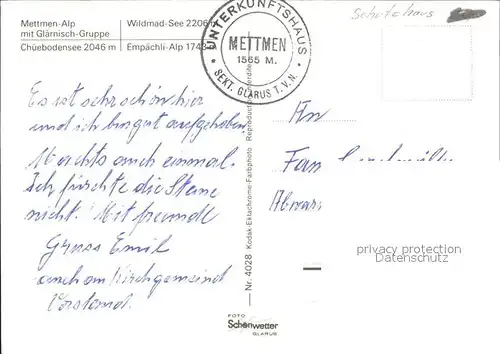 Mettmen-Alp
mit Glärnisch-Gruppe
Chüebodensee 2046 m
Wildmad-See 2206 m
Empächli-Alp 1748
UNTERKUNFTSHAUS
METTMEN
1565 M.
SEKT. GLARUS T.V.N.
Schutzhaus
Es ist sehr schön hier
und ich bin gut aufgehoben.
Machts auch einmal.
Ich fürchte die Steine
nicht! Mit freunde
Gruss Emil
auch an Kirchgemeind
Vorstand.
An
Fam
privacy protection
Datenschutz
Nr. 4028 Kodak-Ektachrome-Farbphoto Reproduktion
FOTO
Schönwetter
GLARUS